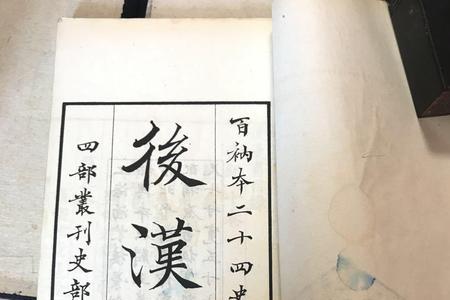 百衲本二十四史
後漢
四部叢刊史部